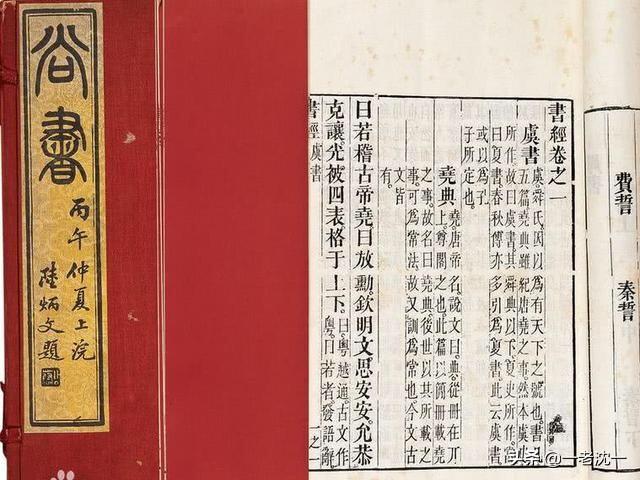 尚書
丙午仲夏上浣
陸炳文題
費誓
秦誓
書經卷之一
虞書 虞舜氏因以爲有天下之號也書
五篇堯典雖紀唐堯之事然本虞史
所作故曰虞書其舜典以下夏史所作
曰夏書春秋傳亦多引爲夏書此云虞書
或以爲孔
子所定也
堯典 堯唐帝名說文曰典從冊在丌
上尊閣之也此篇以簡冊載堯
之事故名曰堯典後世以其所載之
事可爲常法故又訓爲常也今文古
文皆
有
曰若稽古帝堯曰放勳欽明文思安安允恭
克讓光被四表格于上下 曰粵越通古文作
粵曰若者發語辭
書經 虞書 一之一
头条 @一老沈一